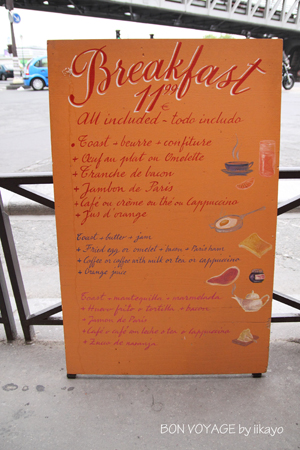 Breakfast
11.99 €
All included - todo includo
• Toast + beurre + confiture
+ Œuf au plat ou Omelette
+ Tranche de bacon
+ Jambon de Paris
+ Café ou crème ou thé ou Cappuccino
+ Jus d'orange
Toast + butter + jam
+ Fried egg or omelet + bacon + Paris ham
+ Coffee or coffee with milk or tea or cappuccino
+ Orange juice
Toast + mantequilla + marmelada
+ Huevo frito o tortilla + bacon
+ Jamon de Paris
+ Café o café au leche o tea o cappuccino
+ Zumo de naranja
BON VOYAGE by iikayo